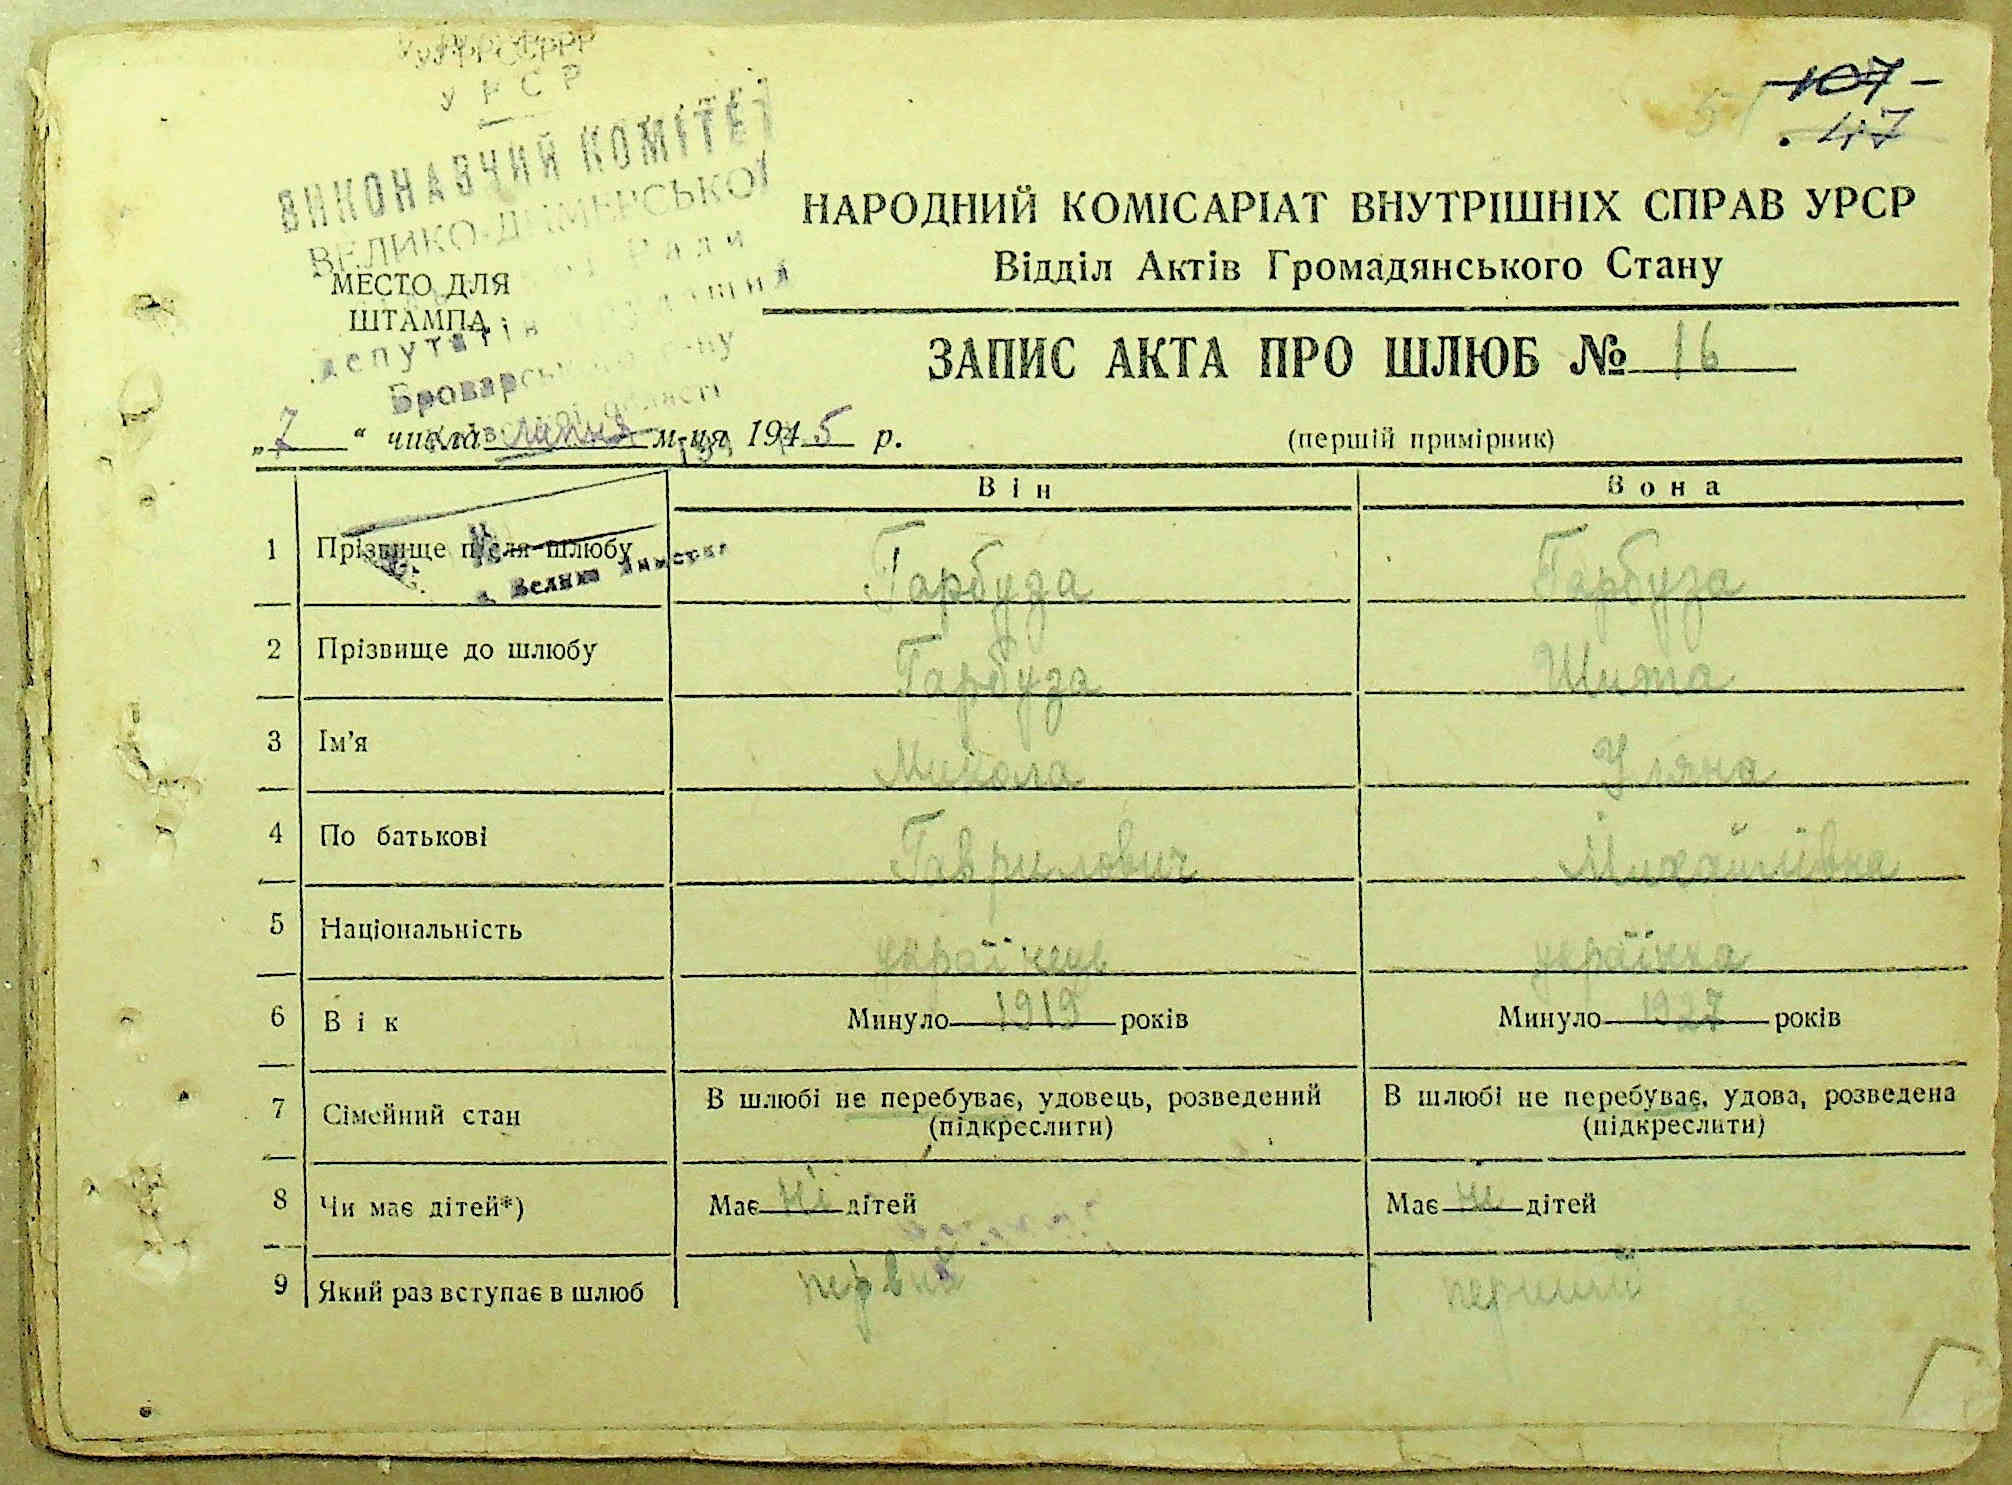 УРСР
ВИКОНАВЧИЙ КОМІТЕТ
ВЕЛИКО-ДИМЕРСЬКОЇ
Ради
депутатів
Броварського
області
107
51
47
НАРОДНИЙ КОМІСАРІАТ ВНУТРІШНІХ СПРАВ УРСР
Відділ Актів Громадянського Стану
МЕСТО ДЛЯ
ШТАМПА
ЗАПИС АКТА ПРО ШЛЮБ № 16
„7“ числа м-ця 1945 р.
(першій примірник)
Він Вона
1 Прізвище після шлюбу Гарбуза Гарбуза
Велика Димерка
2 Прізвище до шлюбу Гарбуза Шита
3 Ім'я Микола Уляна
4 По батькові Гаврилович Михайлівна
5 Національність українець українка
6 Вік Минуло 1919 років Минуло 1927 років
7 Сімейний стан В шлюбі не перебуває, удовець, розведений В шлюбі не перебуває, удова, розведена
(підкреслити) (підкреслити)
8 Чи має дітей*) Має ні дітей Має ні дітей
9 Який раз вступає в шлюб перший